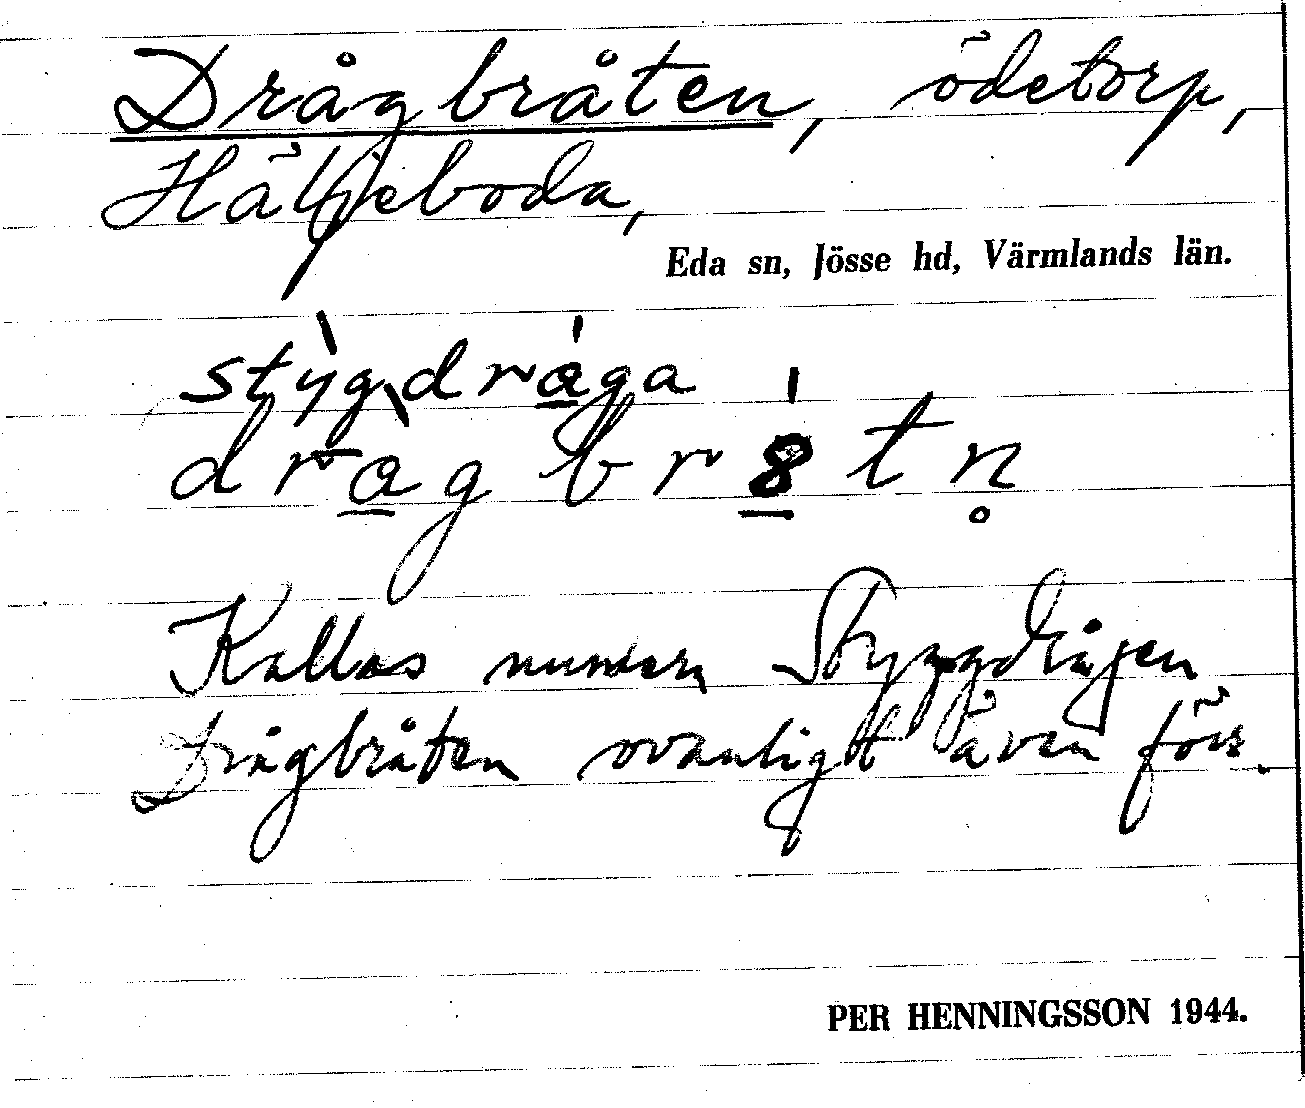 Drågbråten, ödetorp,
Häljeboda,
Eda sn, Jösse hd, Värmlands län.
stỳg̀dra̱̍ga
drà̱gbr8̱̍tn̥
Kallas numera Styggdrågen
Drågbråten ovanligt även förr.
PER HENNINGSSON 1944.